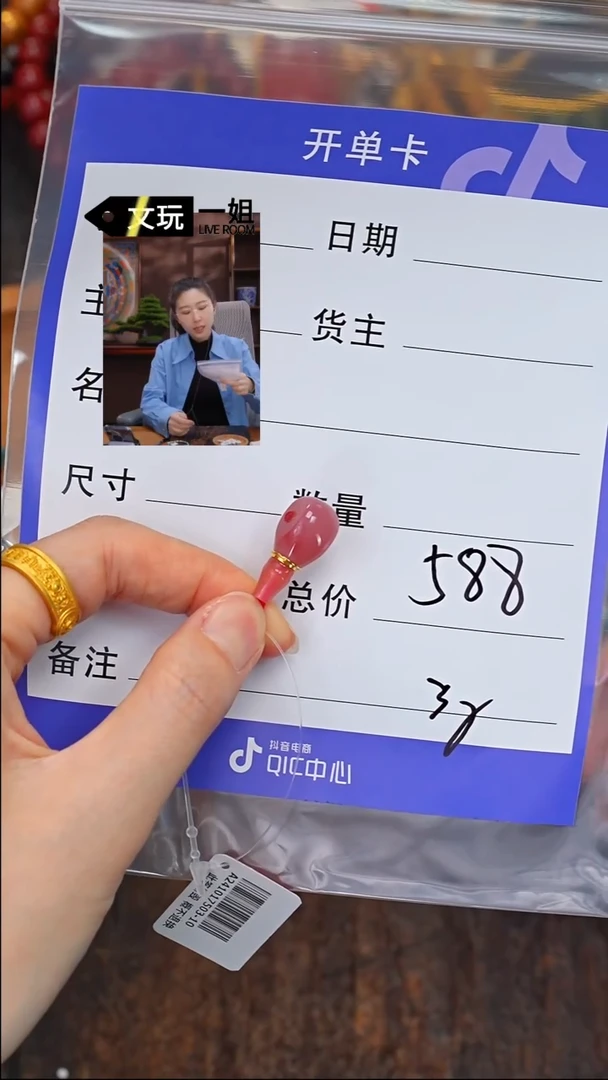 开单卡
文玩 一姐
LIVE ROOM
日期
主
货主
名
尺寸
数量
588
总价
备注
抖音电商
QIC中心
A241017503-10